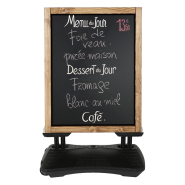 Menu du Jour 13.50
Foie de
veau
purée maison
Dessert du Jour
Fromage
blanc au miel
Café